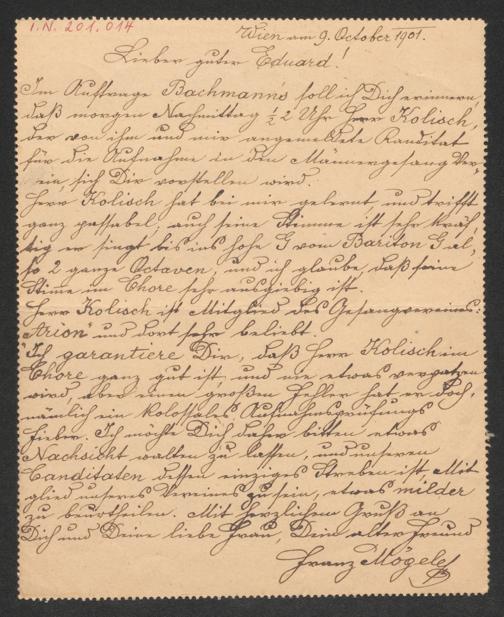 I.N. 201.014
Wien am 9. October 1901.
Lieber guter Eduard!
Im Auftrage Bachmann's soll ich Dich erinnern,
daß morgen Nachmittag ½ 2 Uhr Herr Kolisch,
der von ihm und mir angemeldete Kanditat
für die Aufnahme in den Männergesang Ver-
ein, sich Dir vorstellen wird.
Herr Kolisch hat bei mir gelernt, und trifft
ganz passabel, auch seine Stimme ist sehr kräf-
tig er singt bis ins hohe G vom Bariton G al-
so 2 ganze Octaven, und ich glaube, daß seine
Stime im Chore sehr ausgiebig ist.
Herr Kolisch ist Mitglied des Gesangvereines:
"Arion" und dort sehr beliebt.
Ich garantiere Dir, daß Herr Kolisch im
Chore ganz gut ist, und nie etwas verpatzen
wird, aber einen großen Fehler hat er doch,
nämlich ein kolossales Aufnahmsprüfungs
fieber. Ich möchte Dich daher bitten, etwas
Nachsicht walten zu lassen, und unseren
Canditaten dessen einziges Streben ist Mit
glied unseres Vereines zu sein, etwas milder
zu beurtheilen. Mit herzlichem Gruß an
Dich und Deine liebe Frau, Dein alter Freund
Franz Mögele